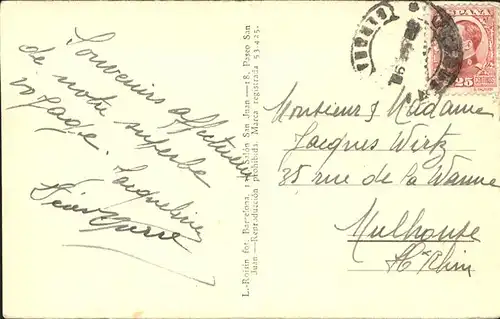 Souvenirs affectueux
de notre superbe
voyage. Jacqueline
L.-Roisin fot. Barcelona, Salón San Juan — 18, Paseo San
Juan — Reproducción prohibida. Marca registrada 53.425.
GERONA
ESPAÑA
25
Monsieur & Madame
Jacques Wirtz
35 rue de la Wanne
Mulhouse
Ht Rhin